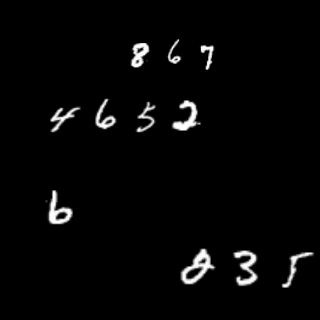 8 6 7
4 6 5 2
6
2 3 5